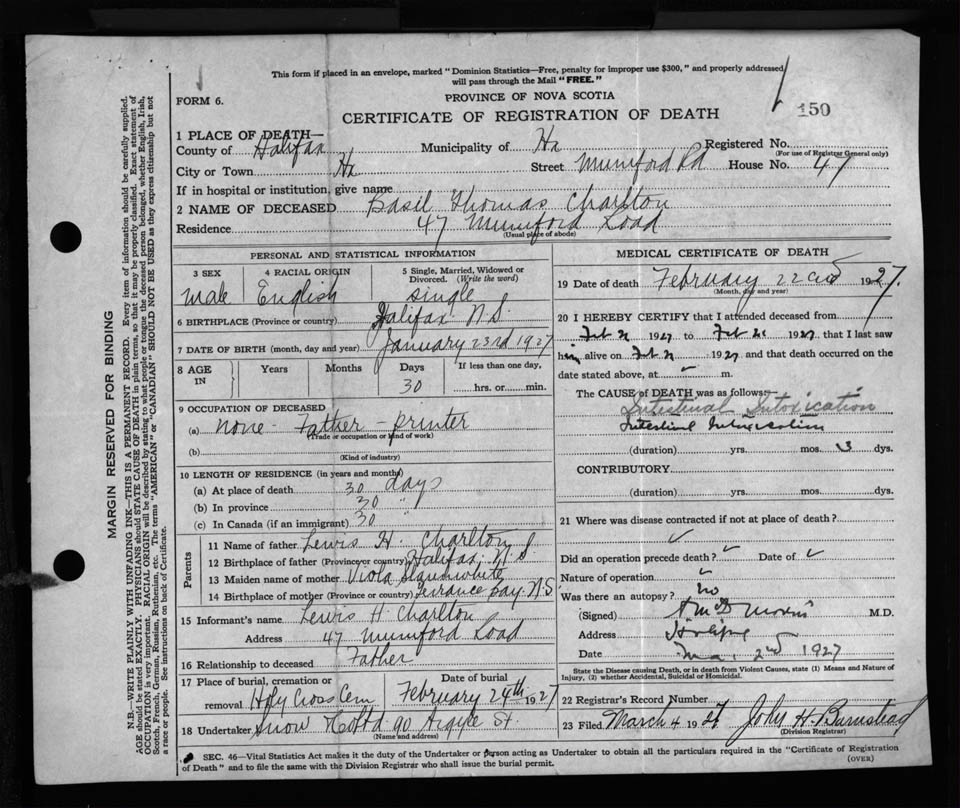 This form if placed in an envelope, marked "Dominion Statistics—Free, penalty for improper use $300," and properly addressed
will pass through the Mail "FREE."
FORM 6.
PROVINCE OF NOVA SCOTIA
150
CERTIFICATE OF REGISTRATION OF DEATH
1 PLACE OF DEATH—
County of Halifax Municipality of Hx Registered No.
(For use of Registrar General only)
City or Town Hx Street Mumford Rd House No. 47
If in hospital or institution, give name
2 NAME OF DECEASED Basil Thomas Charlton
Residence 47 Mumford Road
(Usual place of abode)
PERSONAL AND STATISTICAL INFORMATION
3 SEX 4 RACIAL ORIGIN 5 Single, Married, Widowed or Divorced. (Write the word)
male English single
6 BIRTHPLACE (Province or country) Halifax N.S.
7 DATE OF BIRTH (month, day and year) January 23rd 1927
8 AGE IN Years Months Days If less than one day,
30 hrs. or min.
9 OCCUPATION OF DECEASED
(a) none - Father - printer
(Trade or occupation or kind of work)
(b)
(Kind of industry)
10 LENGTH OF RESIDENCE (in years and months)
(a) At place of death 30 days
(b) In province 30 "
(c) In Canada (if an immigrant) 30 "
Parents
11 Name of father Lewis H. Charlton
12 Birthplace of father (Province or country) Halifax, N.S
13 Maiden name of mother Viola
14 Birthplace of mother (Province or country) Terrance Bay. N.S
15 Informant's name Lewis H. Charlton
Address 47 Mumford Road
16 Relationship to deceased Father
17 Place of burial, cremation or removal Date of burial
Holy Cross Cem February 24th 1927
18 Undertaker Snow & Co Ltd 90 Argyle St.
(Name and address)
MEDICAL CERTIFICATE OF DEATH
19 Date of death February 22nd 1927.
(Month, day and year)
20 I HEREBY CERTIFY that I attended deceased from
Feb 1927 to Feb 1927 that I last saw
him alive on Feb 1927 and that death occurred on the
date stated above, at m.
The CAUSE OF DEATH was as follows:
Intestinal Intoxication
Intestinal Intoxication
(duration) yrs. mos. 3 dys.
CONTRIBUTORY
(duration) yrs. mos. dys.
21 Where was disease contracted if not at place of death?
Did an operation precede death? Date of
Nature of operation
Was there an autopsy? no
(Signed) M.D.
Address Halifax
Date 2nd 1927
State the Disease causing Death, or in death from Violent Causes, state (1) Means and Nature of
Injury, (2) whether Accidental, Suicidal or Homicidal.
22 Registrar's Record Number
23 Filed March 4 1927 John H. Barnstead
(Division Registrar)
SEC. 46—Vital Statistics Act makes it the duty of the Undertaker or person acting as Undertaker to obtain all the particulars required in the "Certificate of Registration
of Death" and to file the same with the Division Registrar who shall issue the burial permit.
(OVER)
MARGIN RESERVED FOR BINDING
N.B. WRITE PLAINLY WITH UNFADING INK—THIS IS A PERMANENT RECORD. Every item of information should be carefully supplied.
AGE should be stated EXACTLY. PHYSICIANS should STATE CAUSE OF DEATH in plain terms, so that it may be properly classified. Exact statement of
OCCUPATION is very important. RACIAL ORIGIN will be described by stating to what people or tongue the deceased person belonged, whether English, Irish,
Scotch, French, German, Russian, Ruthenian, etc. The terms "AMERICAN" or "CANADIAN" SHOULD NOT BE USED as they express citizenship but not
a race or people. See instructions on back of Certificate.